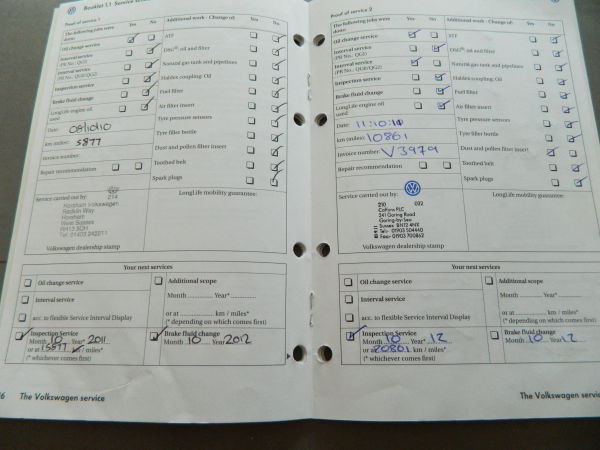 Booklet 1.1 Service
Proof of service 1
The following jobs were done: Yes No
Oil change service
Interval service (PR No.: QG1)
Interval service (PR No.: QG0/QG2)
Inspection service
Brake fluid change
LongLife engine oil used
Date
km (miles): 5877
Invoice number:
Repair recommendation
Additional work - Change of: Yes No
ATF
DSG® oil and filter
Natural gas tank and pipelines
Haldex coupling: Oil
Fuel filter
Air filter insert
Tyre pressure sensors
Tyre filler bottle
Dust and pollen filter insert
Toothed belt
Spark plugs
Service carried out by:
214
Horsham Volkswagen
Redkiln Way
Horsham
West Sussex
RH13 5QH
Volkswagen dealership stamp
LongLife mobility guarantee:
Your next services
Oil change service
Interval service
acc. to flexible Service Interval Display
Inspection Service
Month 10 Year* 2011
or at 15877 km / miles*
(* whichever comes first)
Additional scope
Month ............ Year* ............
or at ............ km / miles*
(* depending on which comes first)
Brake fluid change
Month 10 Year 2012
The Volkswagen service
Proof of service 2
The following jobs were done: Yes No
Oil change service
Interval service (PR No.: QG1)
Interval service (PR No.: QG0/QG2)
Inspection service
Brake fluid change
LongLife engine oil used
Date: 11.10.11
km (miles): 10861
Invoice number: V3979
Repair recommendation
Additional work - Change of: Yes No
ATF
DSG® oil and filter
Natural gas tank and pipelines
Haldex coupling: Oil
Fuel filter
Air filter insert
Tyre pressure sensors
Tyre filler bottle
Dust and pollen filter insert
Toothed belt
Spark plugs
Service carried out by:
210 032
Caffyns PLC
341 Goring Road
Goring-by-Sea
Sussex BN12 4NX
Tel: 01903 504440
Fax: 01903 700862
Volkswagen dealership stamp
LongLife mobility guarantee:
Your next services
Oil change service
Interval service
acc. to flexible Service Interval Display
Inspection Service
Month 10 Year* 12
or at 20801 km / miles*
(* whichever comes first)
Additional scope
Month ............ Year* ............
or at ............ km / miles*
(* depending on which comes first)
Brake fluid change
Month 10 Year 12
The Volkswagen servic